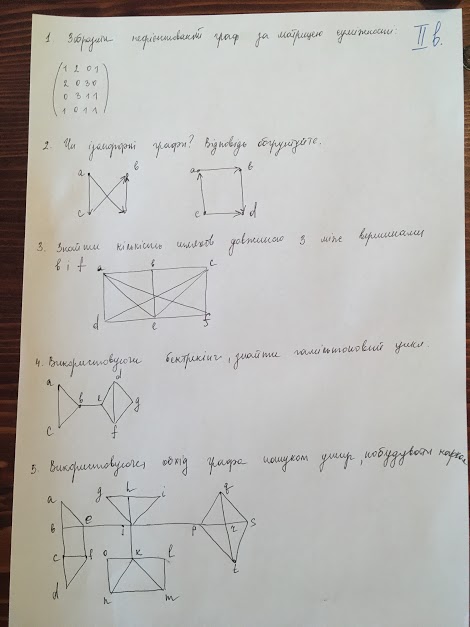 1. Зобразити неорієнтований граф за матрицею суміжності: II в.
1 2 0 1
2 0 3 0
0 3 1 1
1 0 1 1
2. Чи ізоморфні графи? Відповідь обґрунтуйте.
a b a b
c c d
3. Знайти кількість шляхів довжиною 3 між вершинами
b і f
a b c
d e f
4. Використовуючи бектрекінг, знайти гамільтоновий цикл.
a d
b e g
c f
5. Використовуючи обхід графа пошуком ушир, побудувати каркас
a g h i q
b e j p r s
c f o k l
d n m t